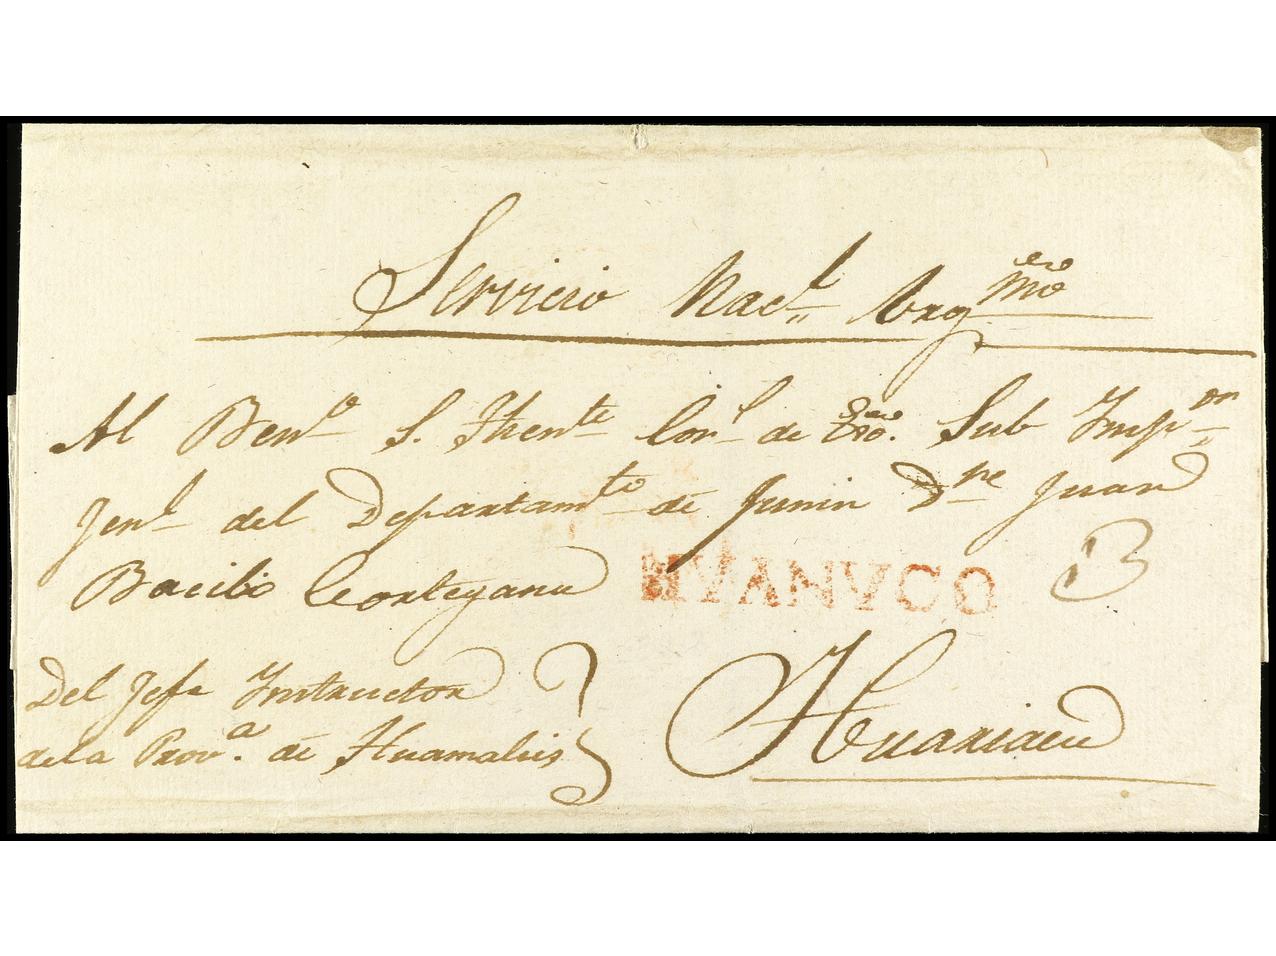 Servicio Nacl. Urgmo
Al Beno. S. Thente Corl. de Exo. Sub Ympon
Jenl. del Departamto de Junin Dn Juan
Bacilio Cortegana
HVANVCO
Del Jefe Ynstructor
de la Prova. de Huamalies
Huariaca